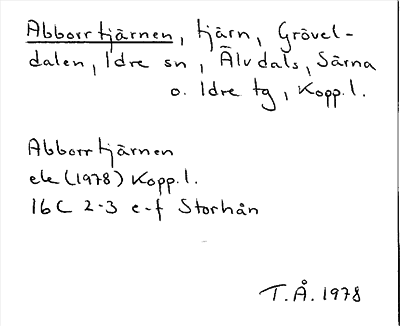 Abborrtjärnen, tjärn, Grövel-
dalen, Idre sn, Älvdals, Särna
o. Idre tg, Kopp.l.
Abborrtjärnen
ek (1978) Kopp.l.
16C 2-3 e-f Storhån
T.Å. 1978